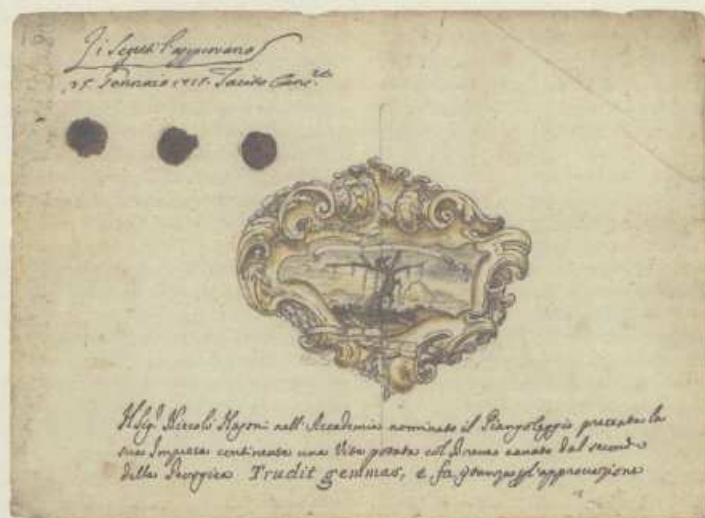 Li Segreti l'approvano
25. Gennaio Tacito Canc.re
Il Sig.r Niccolò Masoni nell'Accademia nominato il Piangoleggio presenta la
sua Impresa continente una Vite potata col Breve cavato dal secondo
della Georgica Trudit gemmas, e fa istanza p l'approvazione